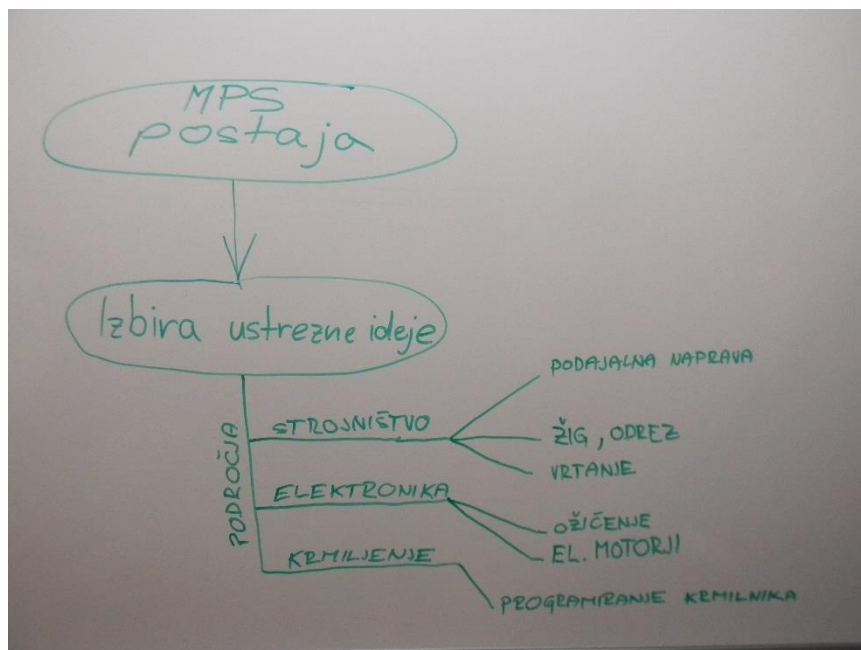 MPS
postaja
Izbira ustrezne ideje
PODROČJA
STROJNIŠTVO
PODAJALNA NAPRAVA
ŽIG, ODREZ
VRTANJE
ELEKTRONIKA
OŽIČENJE
EL. MOTORJI
KRMILJENJE
PROGRAMIRANJE KRMILNIKA